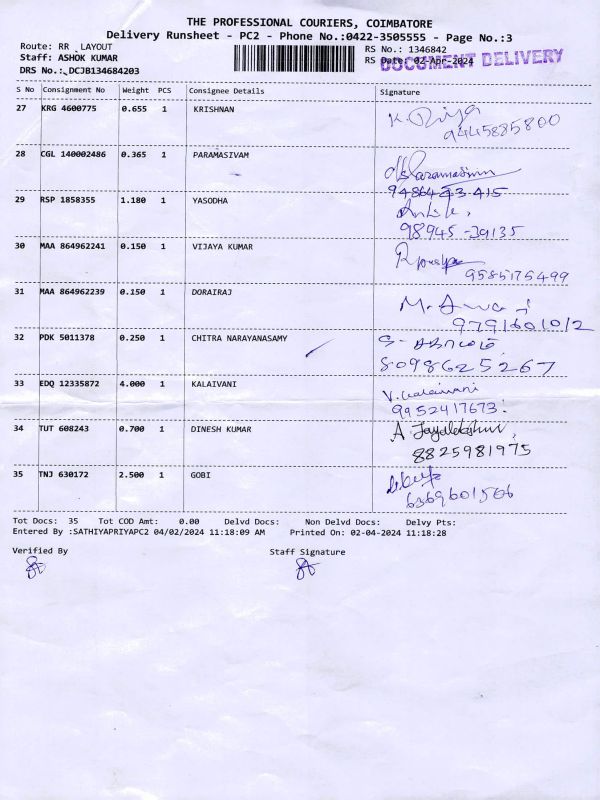 THE PROFESSIONAL COURIERS, COIMBATORE
Delivery Runsheet - PC2 - Phone No.:0422-3505555 - Page No.:3
Route: RR LAYOUT RS No.: 1346842
Staff: ASHOK KUMAR RS Date: 02-Apr-2024
DOCUMENT DELIVERY
DRS No.: DCJB134684203
S No Consignment No Weight PCS Consignee Details Signature
27 KRG 4600775 0.655 1 KRISHNAN K. Priya
9445885800
28 CGL 140002486 0.365 1 PARAMASIVAM
29 RSP 1858355 1.180 1 YASODHA
98945-39135
30 MAA 864962241 0.150 1 VIJAYA KUMAR
9585176499
31 MAA 864962239 0.150 1 DORAIRAJ
9791601012
32 PDK 5011378 0.250 1 CHITRA NARAYANASAMY
8098625267
33 EDQ 12335872 4.000 1 KALAIVANI V. Kalaivani
9952417673
34 TUT 608243 0.700 1 DINESH KUMAR
8825981975
35 TNJ 630172 2.500 1 GOBI
6369601566
Tot Docs: 35 Tot COD Amt: 0.00 Delvd Docs: Non Delvd Docs: Delvy Pts:
Entered By :SATHIYAPRIYAPC2 04/02/2024 11:18:09 AM Printed On: 02-04-2024 11:18:28
Verified By Staff Signature